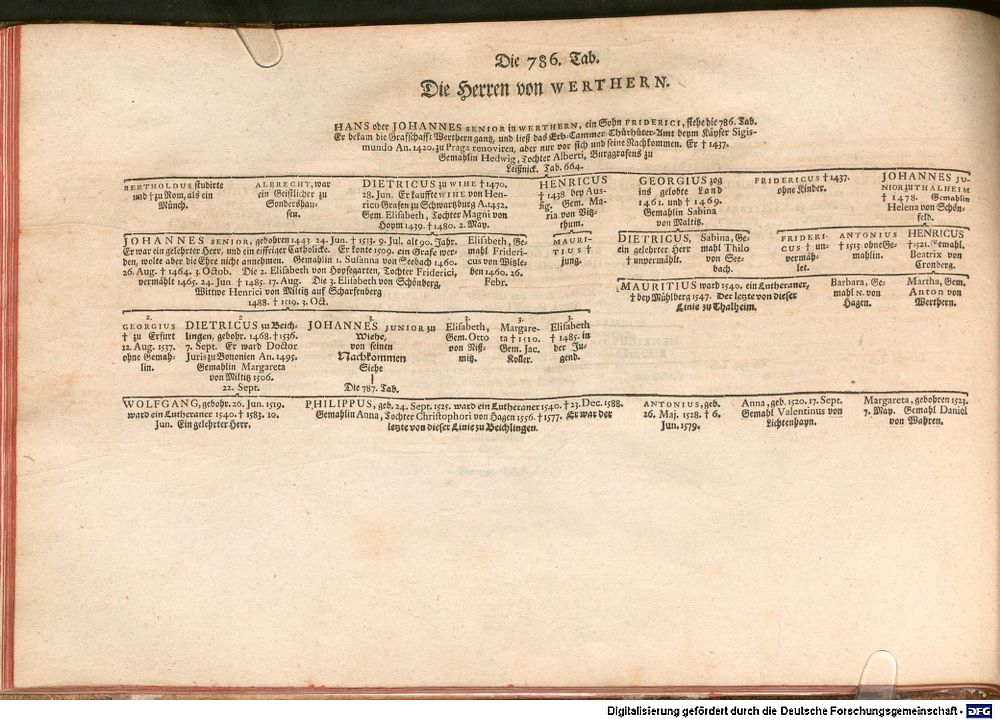 Die 786. Tab.
Die Herren von WERTHERN.
HANS oder JOHANNES SENIOR in WERTHERN, ein Sohn FRIDERICI, siehe die 786. Tab.
Er bekam die Grafschafft Werthern gantz, und ließ das Erb-Cammer-Thürhüter-Amt beym Käyser Sigis-
mundo An. 1420. zu Praga renoviren, aber nur vor sich und seine Nachkommen. Er † 1437.
Gemahlin Hedwig, Tochter Alberti, Burggrafens zu
Leißnick. Tab. 664.
BERTHOLDUS studirte
und † zu Rom, als ein
Münch.
ALBRECHT, war
ein Geistlicher zu
Sondershau-
sen.
DIETRICUS zu WIHE † 1470.
28. Jun. Er kauffte WIHE von Hen-
rico Grafen zu Schwartzburg A. 1452.
Gem. Elisabeth, Tochter Magni von
Hoym 1439. † 1480. 2. May.
HENRICUS
† 1438 bey Aus-
sig. Gem. Ma-
ria von Vitz-
thum.
GEORGIUS zog
ins gelobte Land
1461. und † 1469.
Gemahlin Sabina
von Maltiß.
FRIDERICUS † 1437.
ohne Kinder.
JOHANNES JU-
NIOR zu THALHEIM
† 1478. Gemahlin
Helena von Schön-
feld.
JOHANNES SENIOR, gebohren 1443. 24. Jun. † 1513. 9. Jul. alt 90. Jahr.
Er war ein gelehrter Herr, und ein eiffriger Catholicke. Er konte 1509. ein Grafe wer-
den, wolte aber die Ehre nicht annehmen. Gemahlin 1. Susanna von Seebach 1460.
26. Aug. † 1464. 3. Octob. Die 2. Elisabeth von Hopfegarten, Tochter Friderici,
vermählt 1465. 24. Jun † 1485. 17. Aug. Die 3. Elisabeth von Schönberg,
Wittwe Henrici von Miltitz auf Scharfenberg
1488. † 1510. 3. Oct.
Elisabeth, Ge-
mahl Frideri-
cus von Witzle-
ben 1460. 26.
Febr.
MAURI-
TIUS †
jung.
DIETRICUS,
ein gelehrter Herr
† unvermählt.
Sabina, Ge-
mahl Thilo
von See-
bach.
FRIDERI-
CUS † un-
vermäh-
let.
ANTONIUS
† 1513 ohne Ge-
mahlin.
HENRICUS
† 1521. Gemahl.
Beatrix von
Cronberg.
MAURITIUS ward 1540. ein Lutheraner,
† bey Mühlberg 1547. Der letzte von dieser
Linie zu Thalheim.
Barbara, Ge-
mahl N. von
Hagen.
Martha, Gem.
Anton von
Werthern.
2.
GEORGIUS
† zu Erfurt
12. Aug. 1537.
ohne Gemah-
lin.
2.
DIETRICUS zu Beich-
lingen, gebohr. 1468. † 1536.
7. Sept. Er ward Doctor
Juris zu Bononien An. 1495.
Gemahlin Margareta
von Miltitz 1506.
22. Sept.
3.
JOHANNES JUNIOR zu
Wiehe,
von seinen
Nachkommen
Siehe
Die 787. Tab.
3.
Elisabeth,
Gem. Otto
von Niß-
mitz.
3.
Margare-
ta † 1510.
Gem. Jac.
Koller.
3.
Elisabeth
† 1485. in
der Ju-
gend.
WOLFGANG, gebohr. 26. Jun. 1519.
ward ein Lutheraner 1540. † 1583. 10.
Jun. Ein gelehrter Herr.
PHILIPPUS, geb. 24. Sept. 1525. ward ein Lutheraner 1540. † 23. Dec. 1588.
Gemahlin Anna, Tochter Christophori von Hagen 1556. † 1577. Er war der
letzte von dieser Linie zu Beichlingen.
ANTONIUS, geb.
26. Maj. 1528. † 6.
Jun. 1579.
Anna, geb. 1520. 17. Sept.
Gemahl Valentinus von
Lichtenhayn.
Margareta, gebohren 1523.
7. May. Gemahl Daniel
von Wahren.
Digitalisierung gefördert durch die Deutsche Forschungsgemeinschaft - DFG